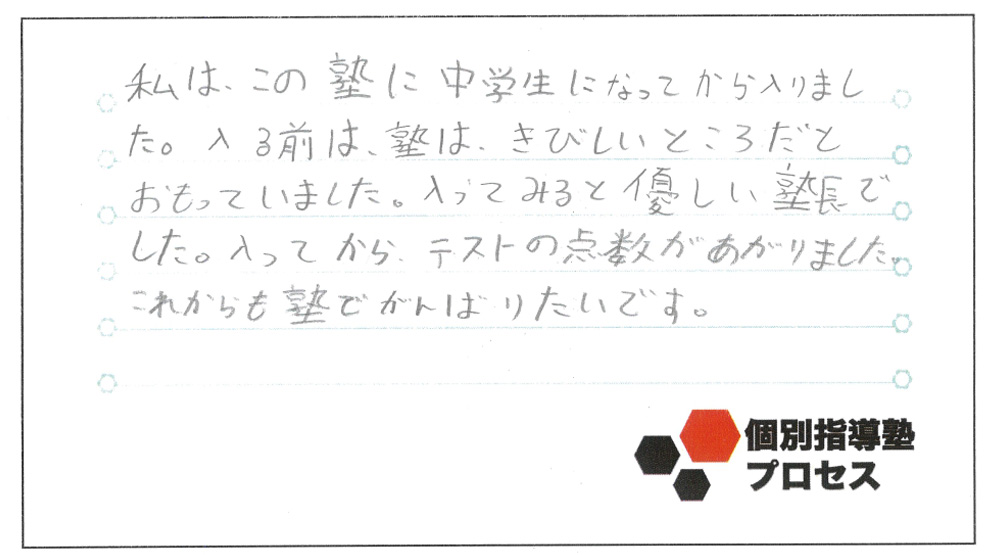 私は、この塾に中学生になってから入りまし
た。入る前は、塾は、きびしいところだと
おもっていました。入ってみると優しい塾長で
した。入ってから、テストの点数があがりました。
これからも塾でがんばりたいです。
個別指導塾
プロセス